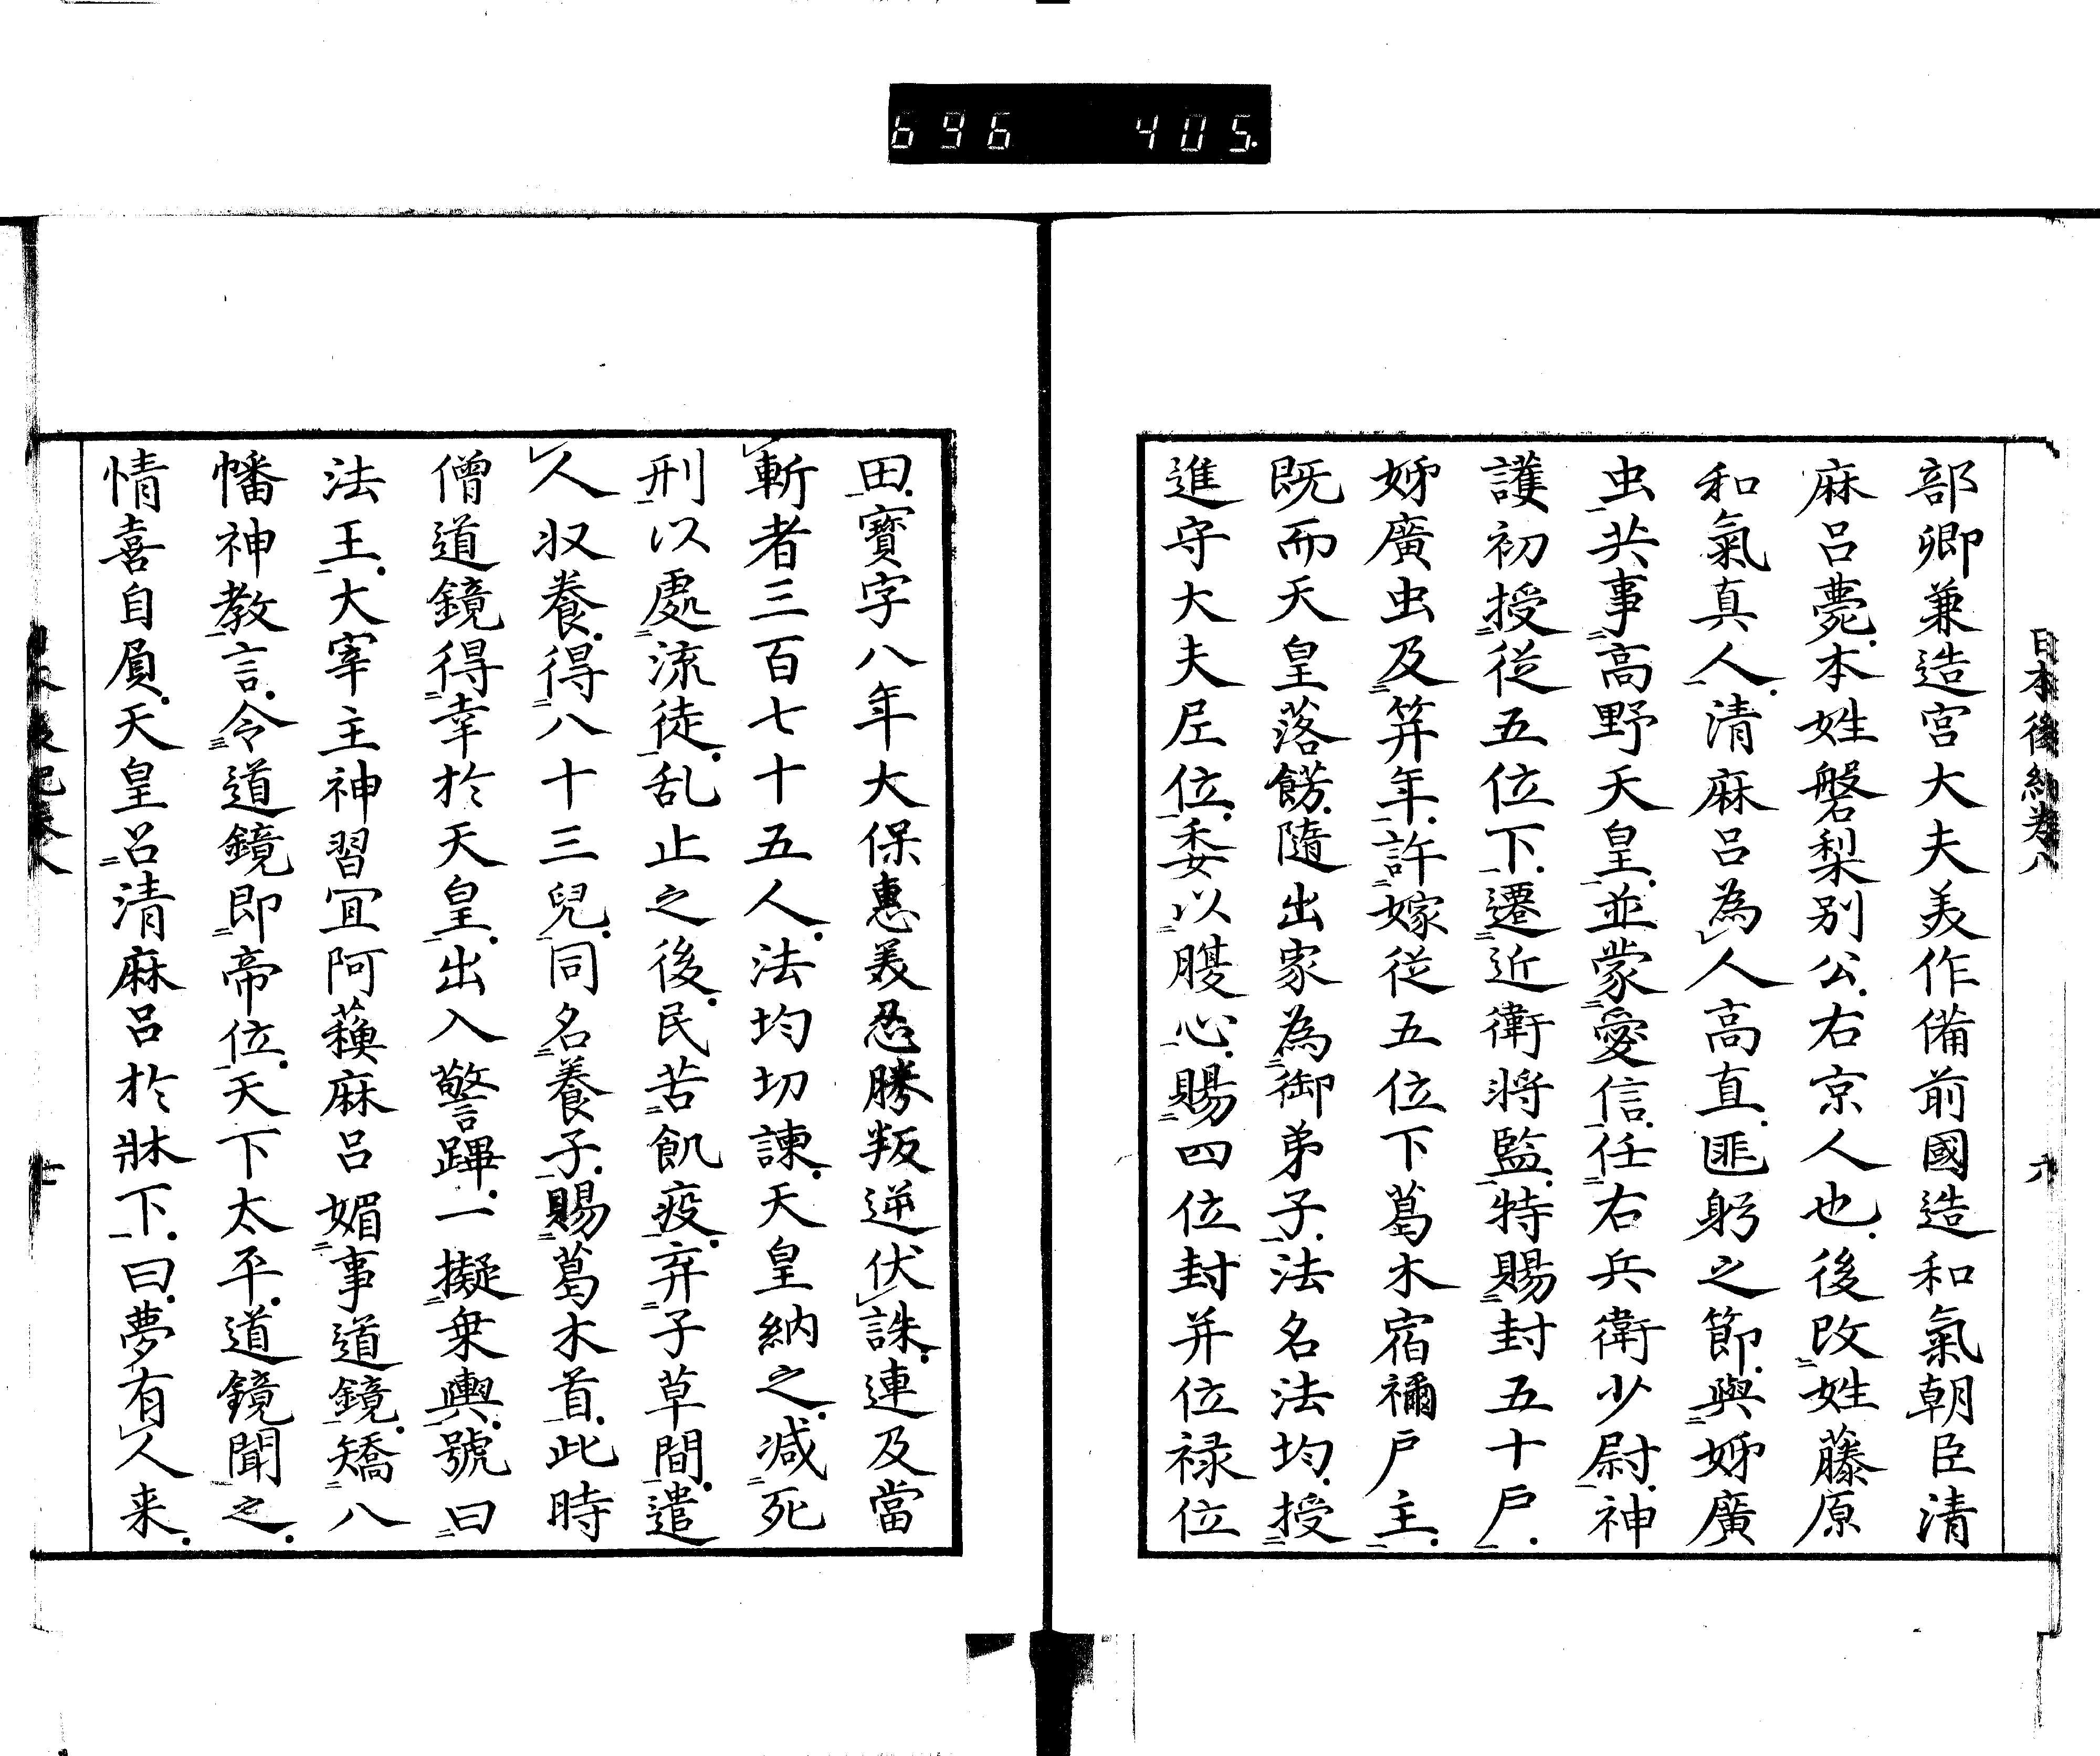 696 405
日本後紀卷八 六
部卿兼造宮大夫美作備前國造和氣朝臣清
麻呂薨本姓磐梨別公右京人也後改姓藤原
和氣真人清麻呂為人高直匪躬之節與姊廣
虫共事高野天皇並蒙愛信任右兵衛少尉神
護初授從五位下遷近衛将監特賜封五十戶
姊廣虫及笄年許嫁從五位下葛木宿禰戶主
既而天皇落餝隨出家為御弟子法名法均授
進守大夫尼位委以腹心賜四位封并位禄位
田寶字八年大保惠美忍勝叛逆伏誅連及當
斬者三百七十五人法均切諫天皇納之減死
刑以處流徒乱止之後民苦飢疫弃子草間遣
人収養得八十三兒同名養子賜葛木首此時
僧道鏡得幸於天皇出入警蹕一擬乗輿號曰
法王大宰主神習宜阿蘓麻呂媚事道鏡矯八
幡神教言令道鏡即帝位天下太平道鏡聞之
情喜自負天皇召清麻呂於牀下曰夢有人来